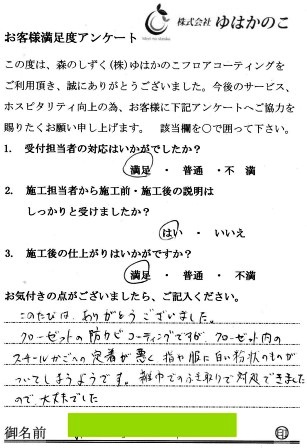 株式会社 ゆはかのこ
お客様満足度アンケート
この度は、森のしずく(株)ゆはかのこフロアコーティングを
ご利用頂き、誠にありがとうございました。今後のサービス、
ホスピタリティ向上の為、お客様に下記アンケートへご協力を
賜りたくお願い申し上げます。 該当欄を○で囲って下さい。
1. 受付担当者の対応はいかがでしたか?
満足 ・ 普通 ・ 不満
2. 施工担当者から施工前・施工後の説明は
しっかりと受けましたか?
はい ・ いいえ
3. 施工後の仕上がりはいかがですか?
満足 ・ 普通 ・ 不満
お気付きの点がございましたら、ご記入ください。
このたびは、ありがとうございました。
クローゼットの防カビコーティングですが、クローゼット内の
スチールかごへの定着が悪く 指や服に白い粉状のものが
ついてしまうようです。雑巾でのふき取りで対処できました
ので 大丈夫でした
御名前 印